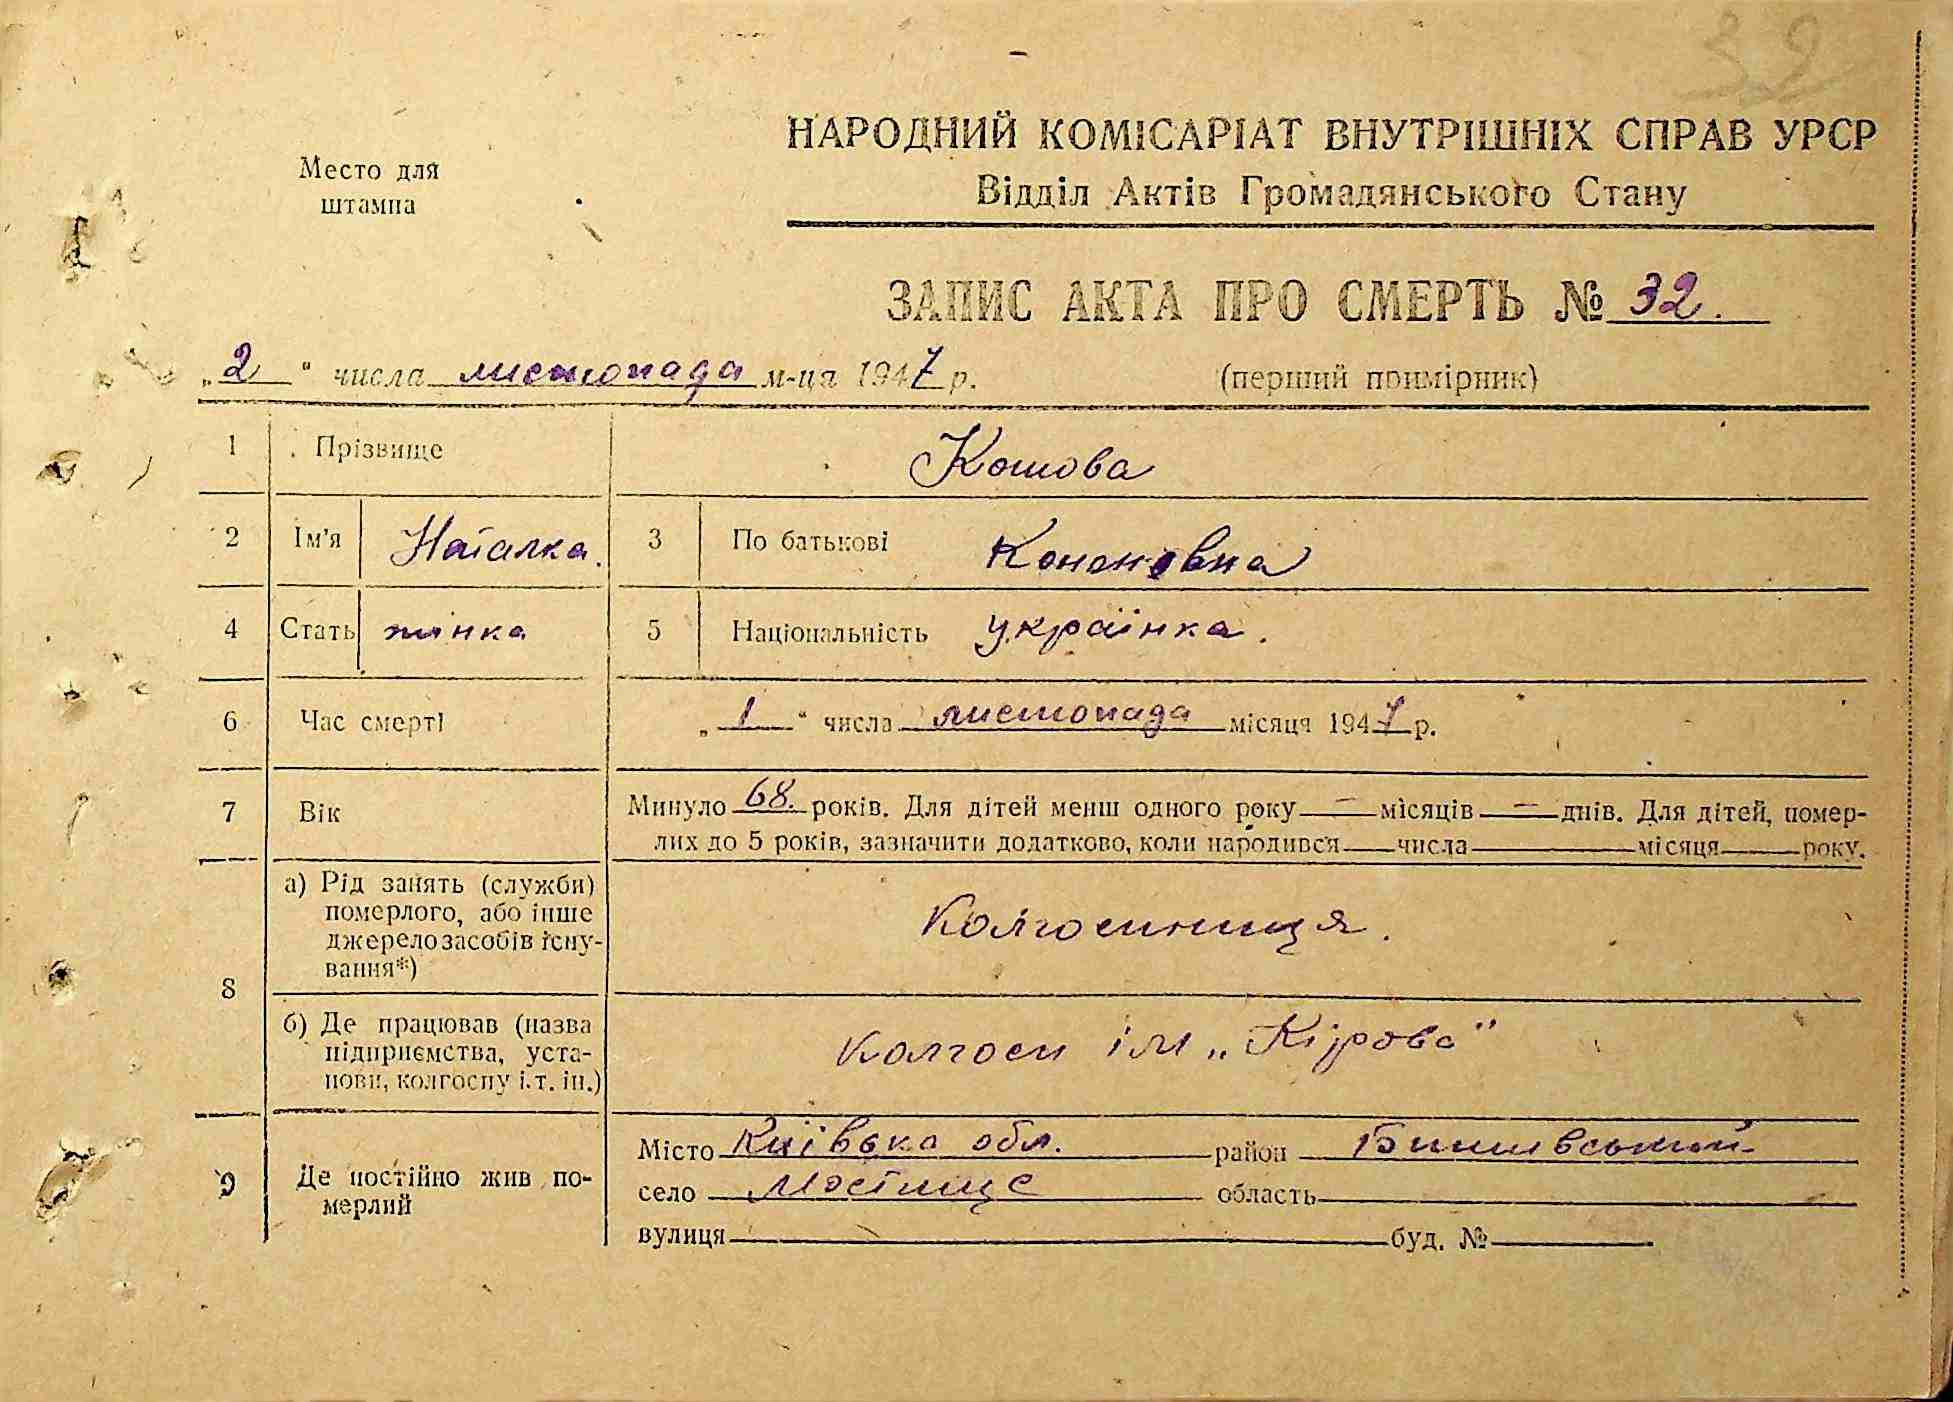 32
НАРОДНИЙ КОМІСАРІАТ ВНУТРІШНІХ СПРАВ УРСР
Место для штампа
Відділ Актів Громадянського Стану
ЗАПИС АКТА ПРО СМЕРТЬ № 32.
„2" числа листопада м-ця 1947 р. (перший примірник)
1 Прізвище Кошова
2 Ім'я Наталка. 3 По батькові Кононовна
4 Стать жінка 5 Національність українка.
6 Час смерті „1" числа листопада місяця 1947 р.
7 Вік Минуло 68. років. Для дітей менш одного року — місяців — днів. Для дітей, помер-
лих до 5 років, зазначити додатково, коли народився числа місяця року.
8 а) Рід занять (служби)
померлого, або інше
джерело засобів існу-
вання*) Колгоспниця.
б) Де працював (назва
підприємства, уста-
нови, колгоспу і т. ін.) колгосп ім „Кірова"
9 Де постійно жив по-
мерлий
Місто Київська обл. район Бишівський
село Мостище область
вулиця буд. №